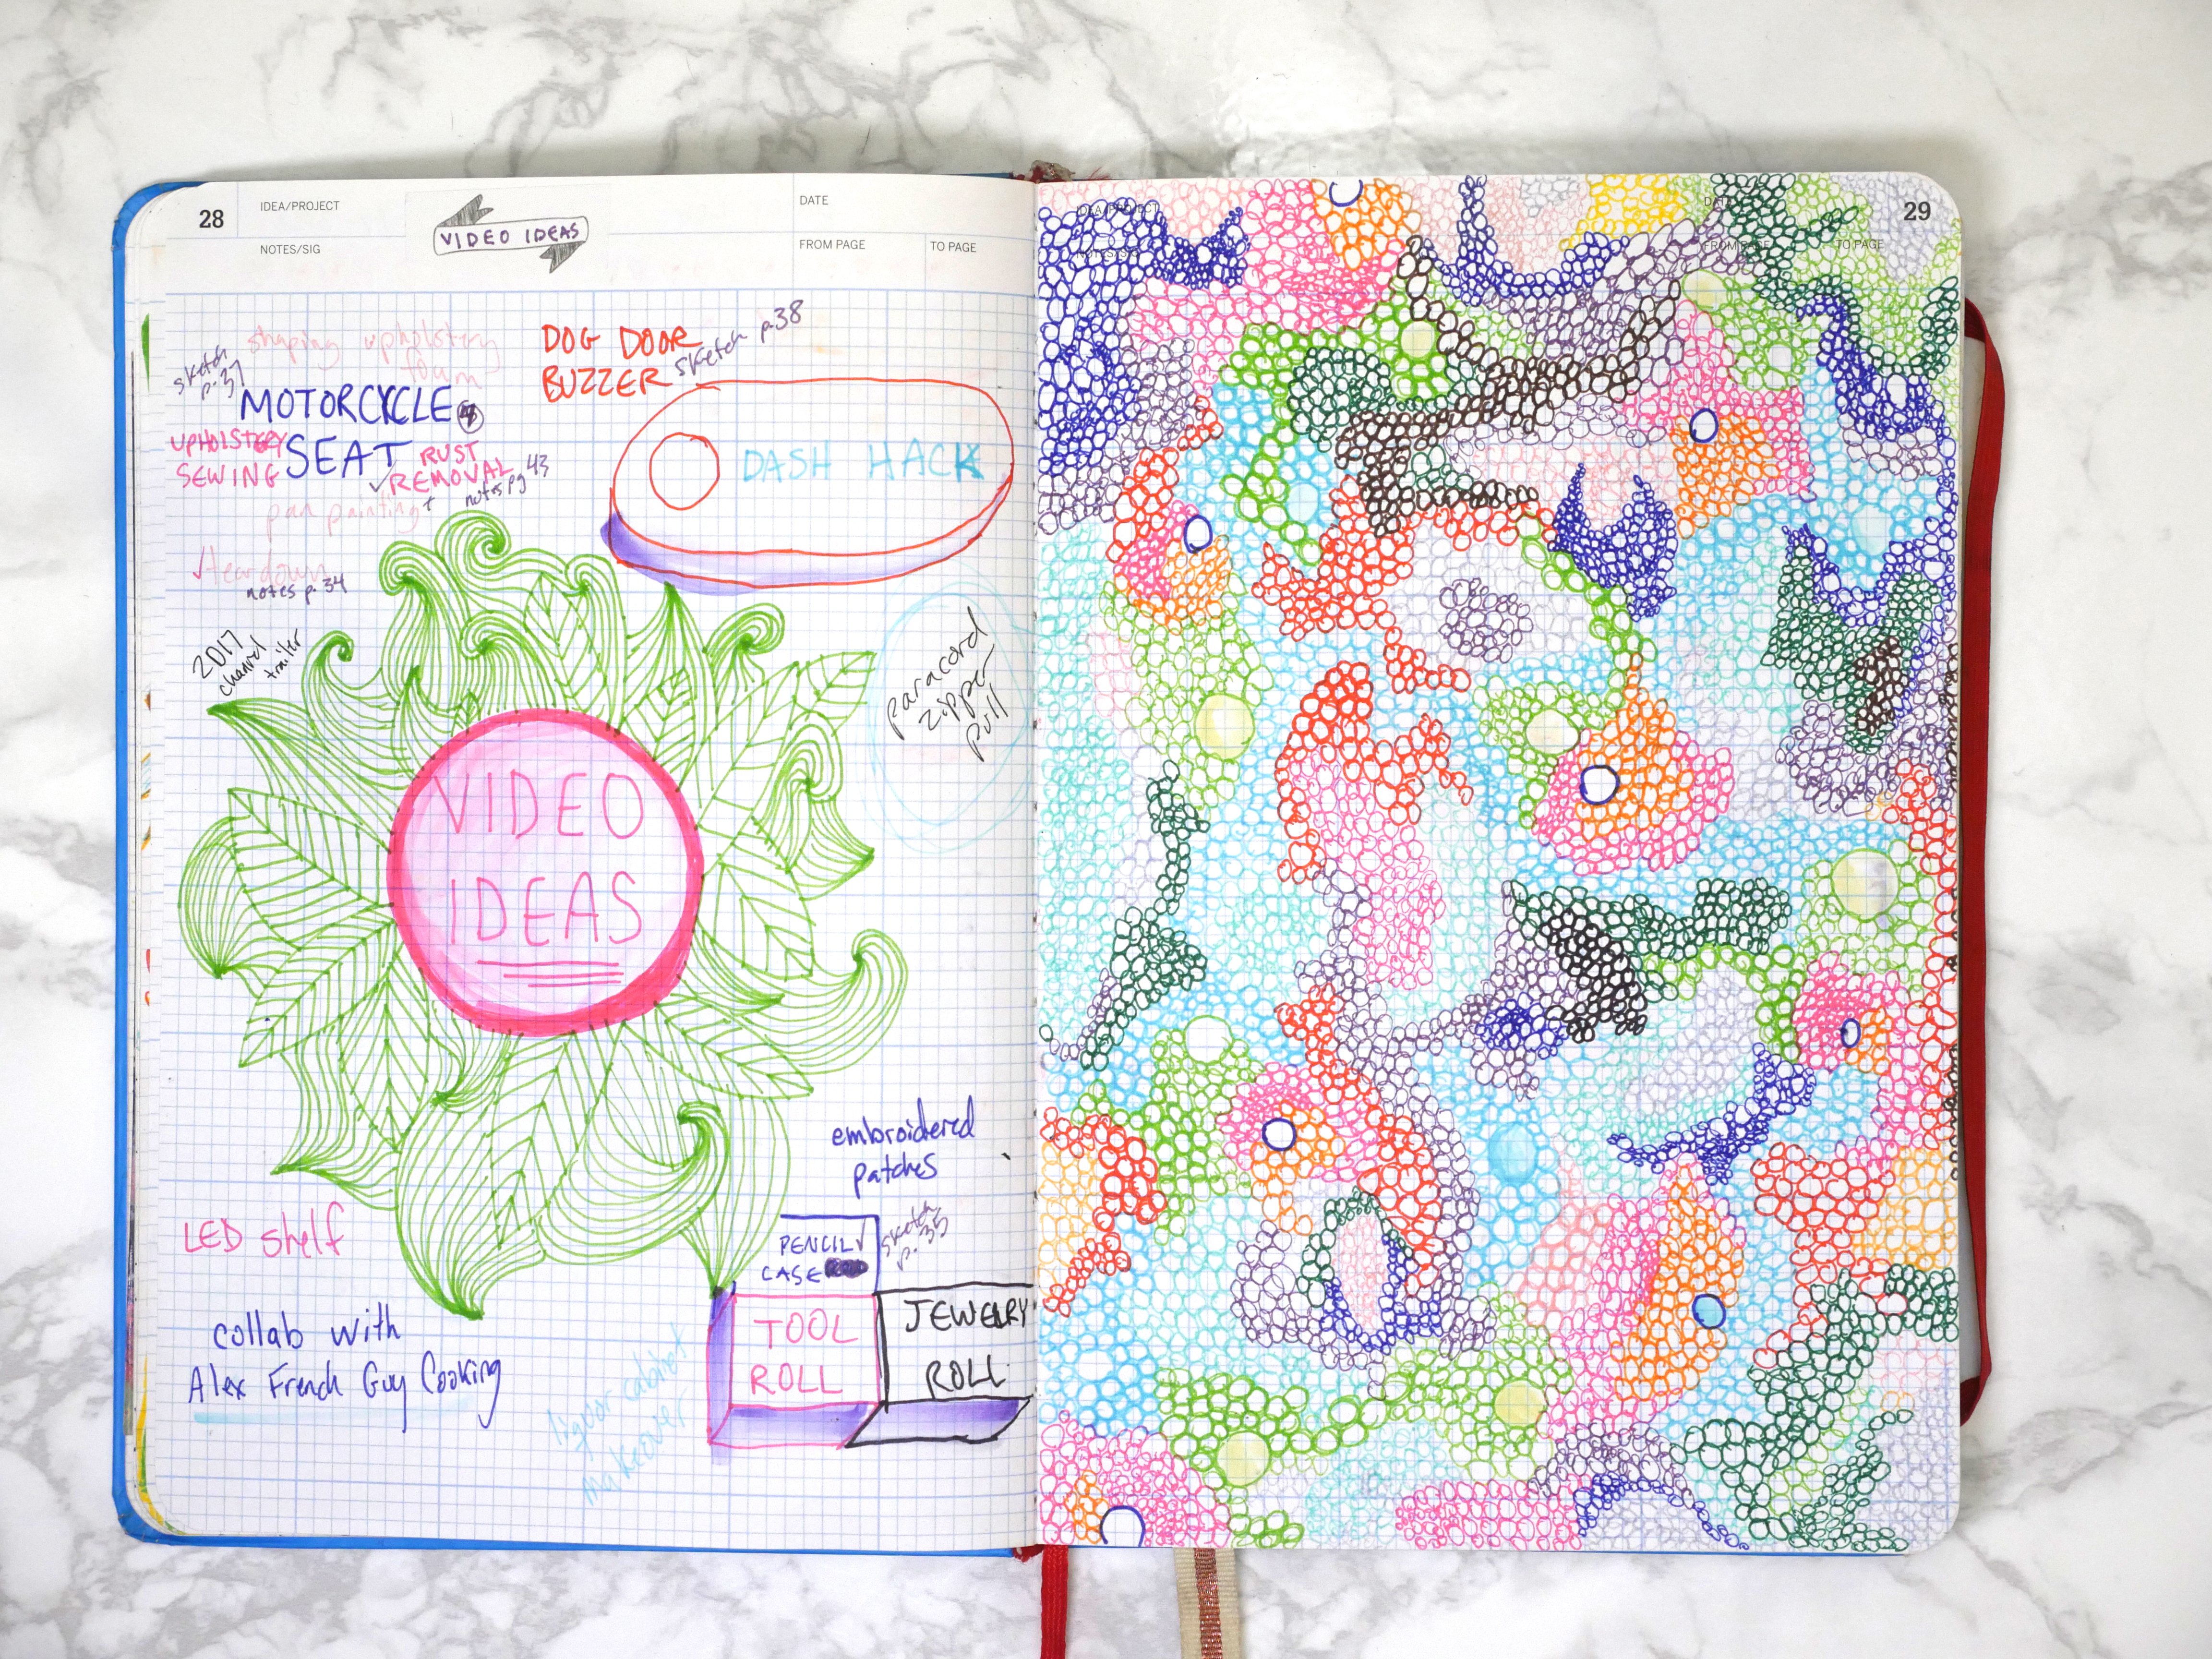 28
IDEA/PROJECT
NOTES/SIG
VIDEO IDEAS
DATE
FROM PAGE
TO PAGE
shaping upholstery
foam
sketch
p.37
MOTORCYCLE
SEAT
UPHOLSTERY
SEWING
RUST
REMOVAL
notes pg 43
pan painting
teardown
notes p.34
DOG DOOR
BUZZER
sketch p.38
DASH HACK
2017
channel
trailer
paracord
zipper
pull
VIDEO
IDEAS
embroidered
patches
LED shelf
PENCIL
CASE
sketch
p.35
TOOL
ROLL
JEWELRY
ROLL
collab with
Alex French Guy Cooking
liquor cabinet
makeover
IDEA/PROJECT
NOTES/SIG
DATE
FROM PAGE
TO PAGE
29